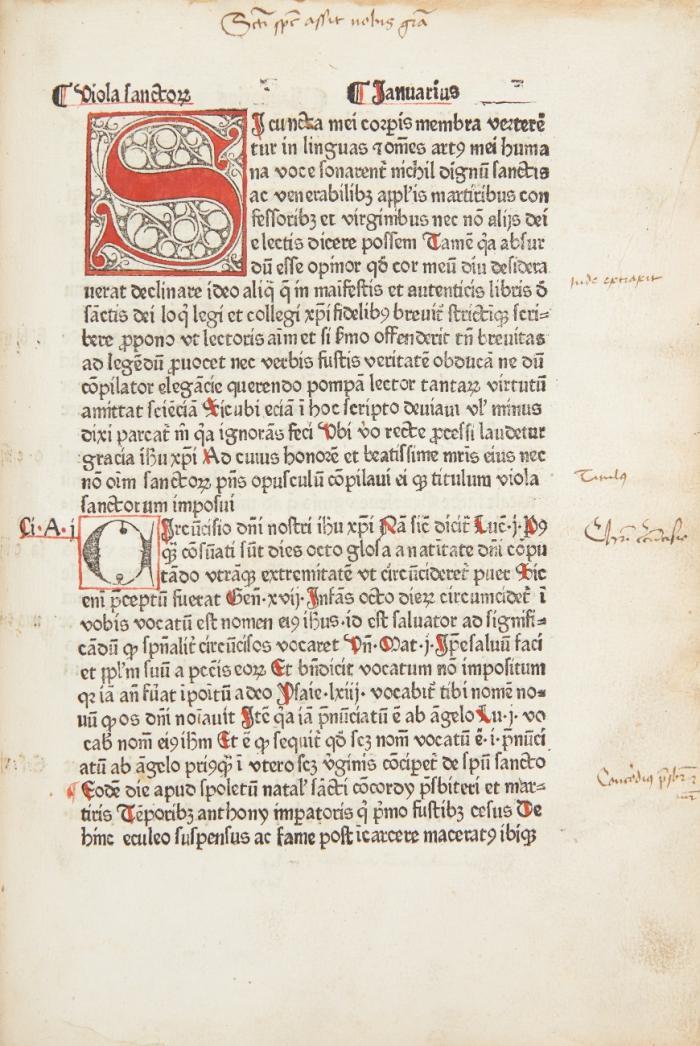 Scti spc assit nobis gra
¶ Viola sanctoꝝ ¶ Januarius
SI cuncta mei corpis membra verterē
tur in linguas ⁊ om̄es artꝯ mei huma
na voce sonarent̄ nichil dignū sanctis
ac venerabilibꝫ appl'is martiribus con
fessoribꝫ et virginibus nec nō alijs dei
electis dicere possem Tamē q̄a absur
dū esse opinor qđ cor meū diu desidera
uerat declinare ideo aliq̄ q̄ in maīfestis et autenticis libris đ
sāctis dei loq̄ legi et collegi xp̄i fidelibꝯ breuit̄ strictīqꝫ scri⸗
bere ꝓpono vt lectoris aīm et si ẜmo offenderit tn̄ breuitas
ad legēdū ꝓuocet nec verbis fustis veritatē obducā ne dū
cōpilator elegācie querendo pompā lector tantaꝝ virtutū
amittat sciēciā Sicubi eciā ī hoc scripto deuiaui vl' minus
dixi parcat̄ m̄ q̄a ignorās feci Vbi ꝟo recte ꝓcessi laudetur
gracia ih̄u xp̄i Ad cuius honorē et beatissime mr̄is eius nec
nō oīm sanctoꝝ pn̄s opusculū cōpilaui ei qꝫ titulum viola
sanctorum imposui
Ci·A·j CIrcūcisio dn̄i nostri ih̄u xp̄i Rā sic̄ dicit̄ Luc̄·j·Pꝯ
qꝫ cōsūati sūt dies octo glosa a natītate dn̄i cōpu
tādo vtrāqꝫ extremitatē vt circūcideret̄ puer Sic
eni p̄ceptū fuerat Gen̄·xvij·Infās octo dieꝝ circumcidet̄ ī
vobis vocatū est nomen eiꝯ ih̄us·id est saluator ad signifi⸗
cādū qꝫ sp̄nalit̄ circūcisos vocaret Vn̄·Mat·j·Ip̄e saluū faci
et ppl'm suū a pcc̄is eoꝝ Et bn̄ dicit vocatum nō impositum
qꝛ iā an̄ fūat īpoītū a deo Ysaie·lxiij·vocabit̄ tibi nomē no⸗
uū qꝫ os dn̄i noīauit Itē q̄a iā p̄nūciatū ē ab āgelo Lu·j·vo
cab nom̄ eiꝯ ihm Et ē qꝫ sequit̄ qđ scꝫ nom̄ vocatū ē·i·p̄nūci
atū ab āgelo priꝯqꝫ ī vtero scꝫ ꝟginis cōcipet̄ de spū sancto
¶ Eodē die apud spoletū natal' sācti cōcordy p̄sbiteri et mar⸗
tiris Tēporibꝫ anthony imꝑatoris q̄ p̄mo fustibꝫ cesus De
hinc eculeo suspensus ac fame post ī carcere maceratꝯ ibiqꝫ
Inde extraxit
Titulꝯ